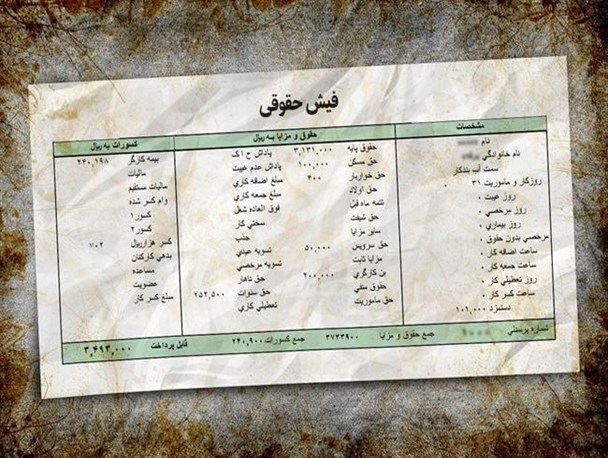 فیش حقوقی
مشخصات
نام
نام خانوادگي
سمت آب بندکار
روزکار و ماموریت ۳۱
روز غیبت ۰
روز مرخصي ۰
روز بیماري ۰
مرخصي بدون حقوق ۰
ساعت اضافه کار ۰
ساعت جمعه کار ۰
روز تعطیلي کار ۰
ساعت کسر کار ۰
دستمزد ۱۰۱,۰۰۰
حقوق و مزایا به ریال
حقوق پایه ۳,۱۳۱,۰۰۰
حق مسکن ۱۰۰,۰۰۰
حق خواربار ۴۰۰
حق اولاد
تتمه ماه قبل
حق شیفت
سایر مزایا
حق سرویس ۵۰,۰۰۰
مزایا ثابت
بن کارگري ۲۰۰,۰۰۰
حقوق منفي
حق ماموریت
پاداش ح ا ک
پاداش عدم غیبت
مبلغ اضافه کاري
مبلغ جمعه کاري
فوق العاده شغل
سختي کار
جنب
تسویه عیدي
تسویه مرخصي
حق ناهار
حق سنوات ۲۵۲,۵۰۰
تعطیلي کاري
کسورات به ریال
بیمه کارگر ۲۴۰,۱۹۸
مالیات
مالیات مستقیم
وام کسر شده
کسور۱
کسور۲
کسر هزارریال ۷۰۲
بدهي کارکنان
مساعده
عضویت
مبلغ کسر کار
شماره پرسنلي جمع حقوق و مزایا ۳۷۳۳۹۰۰ جمع کسورات ۲۴۰,۹۰۰ قابل پرداخت ۳,۴۹۳,۰۰۰